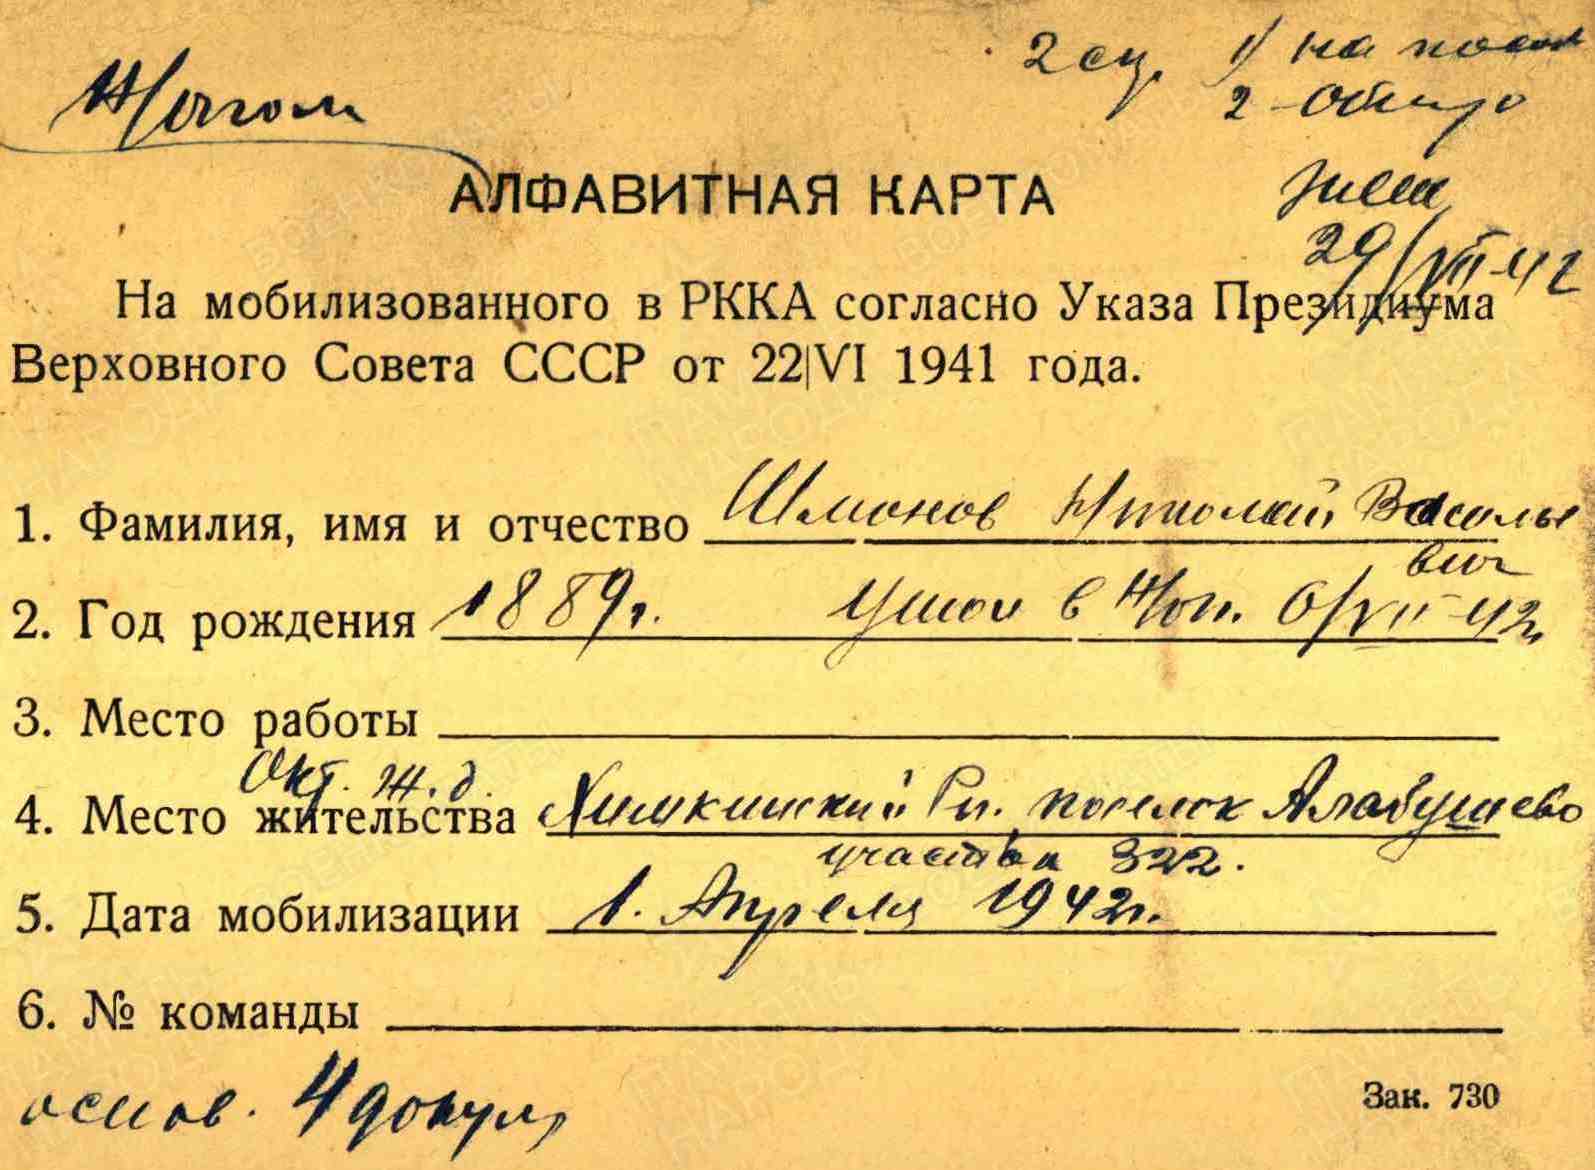 2 сц. 1) на
2-
АЛФАВИТНАЯ КАРТА
29/VII-42
На мобилизованного в РККА согласно Указа Президиума
Верховного Совета СССР от 22|VI 1941 года.
1. Фамилия, имя и отчество Шмонов Николай Василье
вич
2. Год рождения 1889г. в 6/VII-42г.
3. Место работы
Окт. ж.д.
4. Место жительства Химкинский Рн. поселок Алабушево
участок 322.
5. Дата мобилизации 1. Апреля 1942г.
6. № команды
основ. 4 докум
Зак. 730